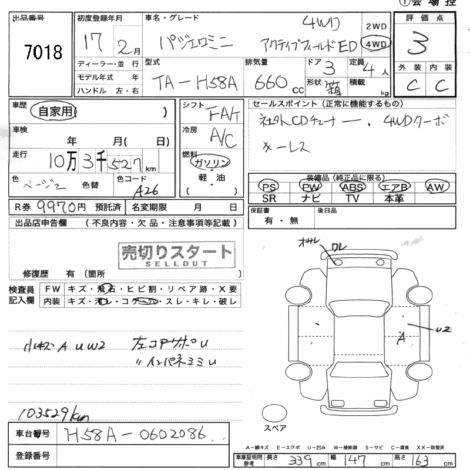 ① 会場控
出品番号 7018
初度登録年月 17年2月
車名・グレード パジェロミニ 4WD アクティブフィールドED
2WD 4WD
評価点 3
ディーラー・並行
モデル年式 年
ハンドル 左・右
型式 TA-H58A
排気量 660cc
ドア 3
形状 箱
定員 4人
積載 kg
外装 内装
C C
車歴 自家用
車検 年 月( 日)
走行 10万3千527km
色 ベージュ 色替 色コード A26
シフト FAT
冷房 A/C
燃料 ガソリン 軽油
セールスポイント(正常に機能するもの)
社外CDチューナー、4WDターボ
キーレス
装備品(純正品に限る)
PS PW ABS エアB AW
SR ナビ TV 本革
R券 9970円 預託済 名変期限 月 日
保証書 有・無
後日品
出品店申告欄(不良内容・欠品・注意事項等記載)
売切りスタート
SELLOUT
修復歴 有(箇所 )
検査員記入欄
FW キズ・飛石・ヒビ割・リペア跡・X要
内装 キズ・汚れ・コゲ・スレ・キレ・破レ
小キズA UW2
103529km
ワレ
A
U2
スペア
車台番号 H58A-0602086
登録番号
A―線キズ E―エクボ U―凹み W―補修跡 S―サビ C―腐食 XX―取替済
車庫証明用参考 長さ 339cm 幅 147cm 高さ 163cm